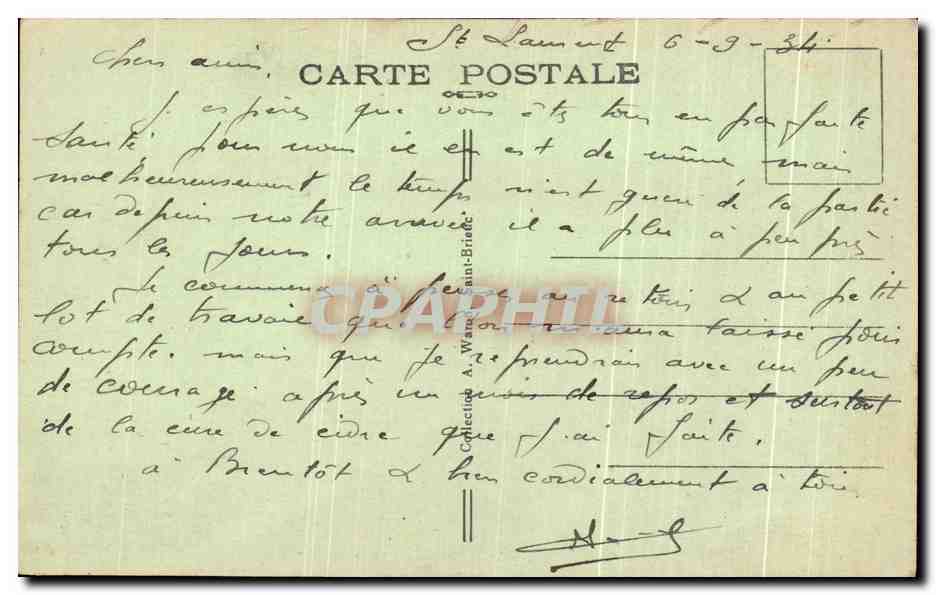 St Laurent 6-9-34
Chers amis.
CARTE POSTALE
J. espères que vous êtes tous en parfaite
santé, pour nous il en est de même mais
malheureusement le temps n'est guère de la partie
car depuis notre arrivée il a plu à peu près
tous les jours.
Je commence à penser au retour & au petit
lot de travail que l'on m'aura laissé pour
compte. mais que je reprendrai avec un peu
de courage après un mois de repos et surtout
de la cure de cidre que j'ai faite.
à Bientôt & bien cordialement à tous
Collection A. Waron, Saint-Brieuc
CPAPHIL